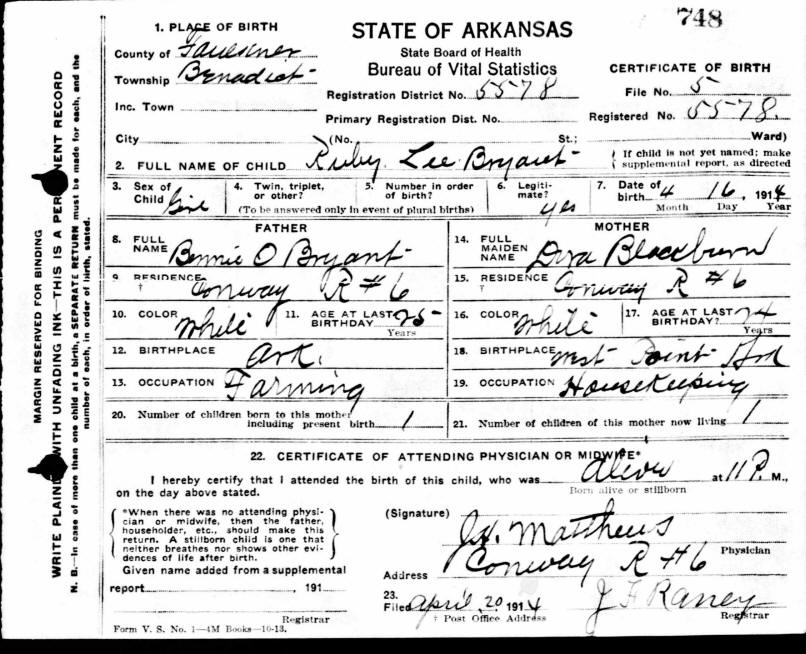 748
1. PLACE OF BIRTH
County of Faulkner
Township Benedict
Inc. Town
City (No. St.; Ward)
STATE OF ARKANSAS
State Board of Health
Bureau of Vital Statistics
Registration District No. 5578
Primary Registration Dist. No.
CERTIFICATE OF BIRTH
File No. 5
Registered No. 5578.
2. FULL NAME OF CHILD Ruby Lee Bryant
If child is not yet named; make
supplemental report, as directed
3. Sex of Child Girl
4. Twin, triplet, or other?
5. Number in order of birth?
(To be answered only in event of plural births)
6. Legitimate? yes
7. Date of birth 4 16, 1914
Month Day Year
FATHER
8. FULL NAME Bennie O Bryant
9. RESIDENCE † Conway R #6
10. COLOR White
11. AGE AT LAST BIRTHDAY 25 Years
12. BIRTHPLACE Ark.
13. OCCUPATION Farming
MOTHER
14. FULL MAIDEN NAME Blackburn
15. RESIDENCE † Conway R #6
16. COLOR White
17. AGE AT LAST BIRTHDAY? 24 Years
18. BIRTHPLACE West Point Ark
19. OCCUPATION Housekeeping
20. Number of children born to this mother, including present birth 1
21. Number of children of this mother now living 1
22. CERTIFICATE OF ATTENDING PHYSICIAN OR MIDWIFE*
I hereby certify that I attended the birth of this child, who was Alive at 11 P. M.,
Born alive or stillborn
on the day above stated.
*When there was no attending physi-
cian or midwife, then the father,
householder, etc., should make this
return. A stillborn child is one that
neither breathes nor shows other evi-
dences of life after birth.
Given name added from a supplemental
report , 191
Registrar
(Signature) Matthews
Physician
Address Conway R #6
23.
Filed April, 20 1914 J F Raney
† Post Office Address Registrar
Form V. S. No. 1—4M Books—10-13.
MARGIN RESERVED FOR BINDING
WRITE PLAINLY WITH UNFADING INK—THIS IS A PERMANENT RECORD
N. B.—In case of more than one child at a birth, a SEPARATE RETURN must be made for each, and the
number of each, in order of birth, stated.